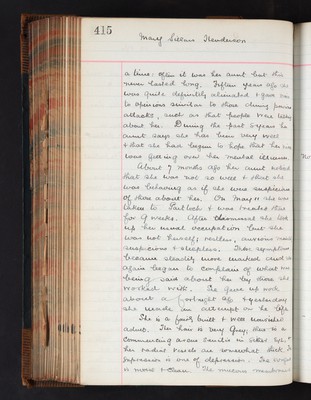 415
Mary Henderson
a time: often it was her aunt but this
never lasted long. Fifteen years ago she
was quite definitely alienated & gave vent
to opinions similar to those during previous
attacks, such as that people were talking
about her. During the past 5 years her
aunt says she has been very well
& that she had begun to hope that her niece
was getting over her mental illness.
About 7 months ago her aunt noticed
that she was not so well & that she
was behaving as if she were suspicious
of those about her. On May 11 she was
taken to & was treated there
for 9 weeks. After she took
up her usual occupation but she
was not herself; restless, anxious
suspicious & sleepless. These symptoms
became steadily more marked and she
again began to complain of what was
being said about her by those she
worked with. She gave up work
about a fortnight ago & yesterday
she made an attempt on her life.
She is a fairly built & well nourished
adult. Her hair is very grey, there is a
commencing arcus senilis in either eye,
her radial vessels are somewhat thick.
expression is one of depression. The tongue
is moist & clean. The mucous membranes